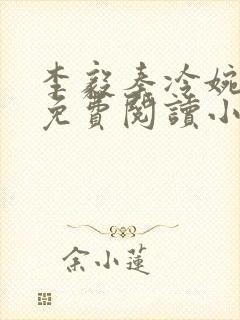 李毅秦冷婉
免費閱讀小
余小蓮